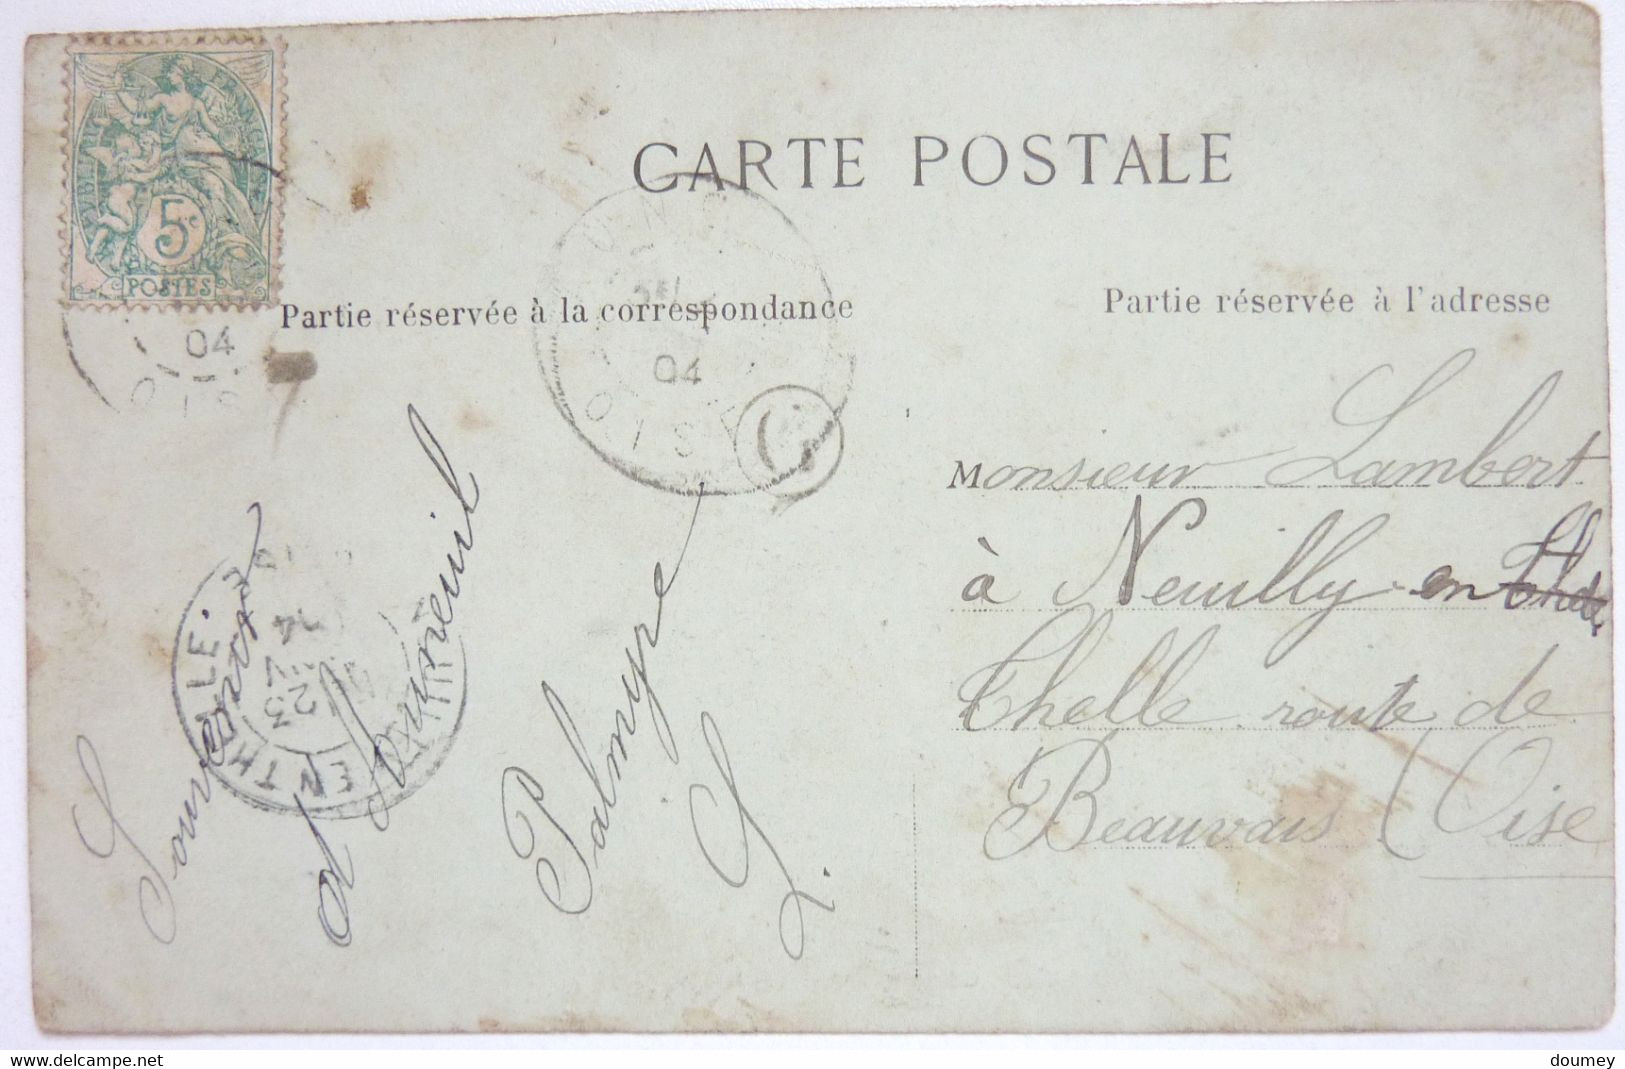 RÉPUBLIQUE FRANÇAISE
5c
POSTES
CARTE POSTALE
Partie réservée à la correspondance
Partie réservée à l'adresse
04
OISE
04
OISE
G
Souvenir
d'Auneuil
Palmyre
L.
EN THELLE
23
Monsieur Lambert
à Neuilly en Thelle
Thelle route de
Beauvais (Oise
www.delcampe.net
doumey